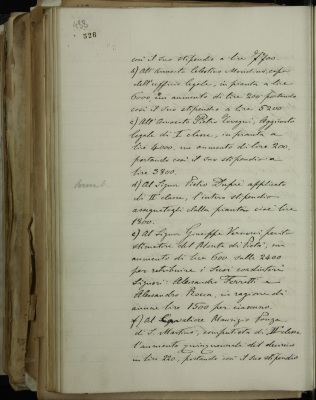 438
326
così il suo stipendio a lire
b) All'Avvocato Celestino capo
dell'ufficio legale, in pianta a lire
6000 un aumento di lire 200 portando
così il suo stipendio a lire 5200
c) All'Avvocato Pietro Aggiunto
legale di I classe, in pianta a
lire 4000 un aumento di lire 200,
portando così il suo stipendio a
lire 3800.
d) Al Signor Pietro Dupré applicato
di II classe, l'intero stipendio
assegnatogli dalla pianta cioè lire
1800.
e) Al Signor Giuseppe perito
stimatore del Monte di Pietà, un
aumento di lire 600 sulle 2400
per retribuire i suoi coadiutori
Signori: Alessandro Ferretti e
Alessandro in ragione di
annue lire 1500 per ciascuno.
f) Al Cavaliere Maurizio
di S. Martino, computista di II classe
l'aumento quinquennale del decimo
in lire 220, portando così il suo stipendio